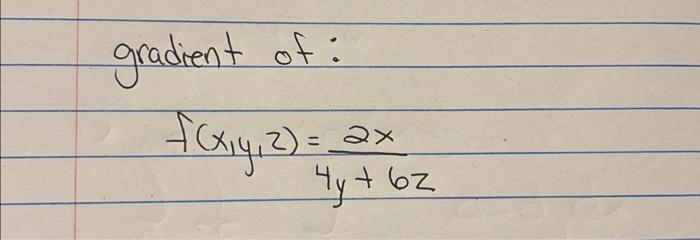 gradient of:
f(x,y,z) = 2x
4y + 6z